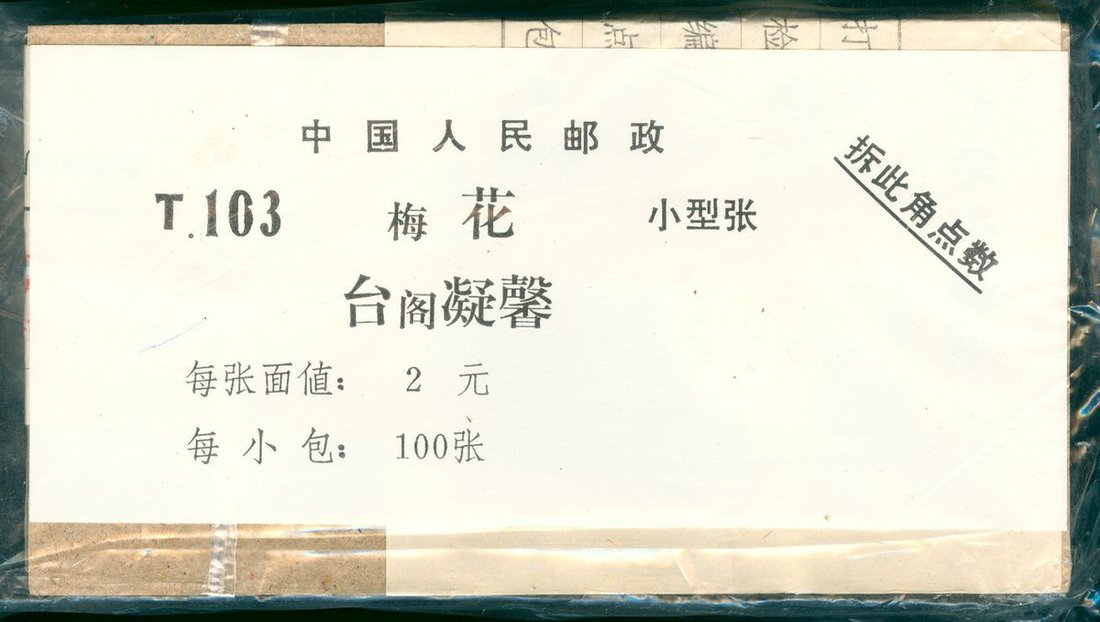 包 点 编 检 打
中国人民邮政
T.103 梅花 小型张
拆此角点数
台阁凝馨
每张面值： 2 元
每小包： 100张